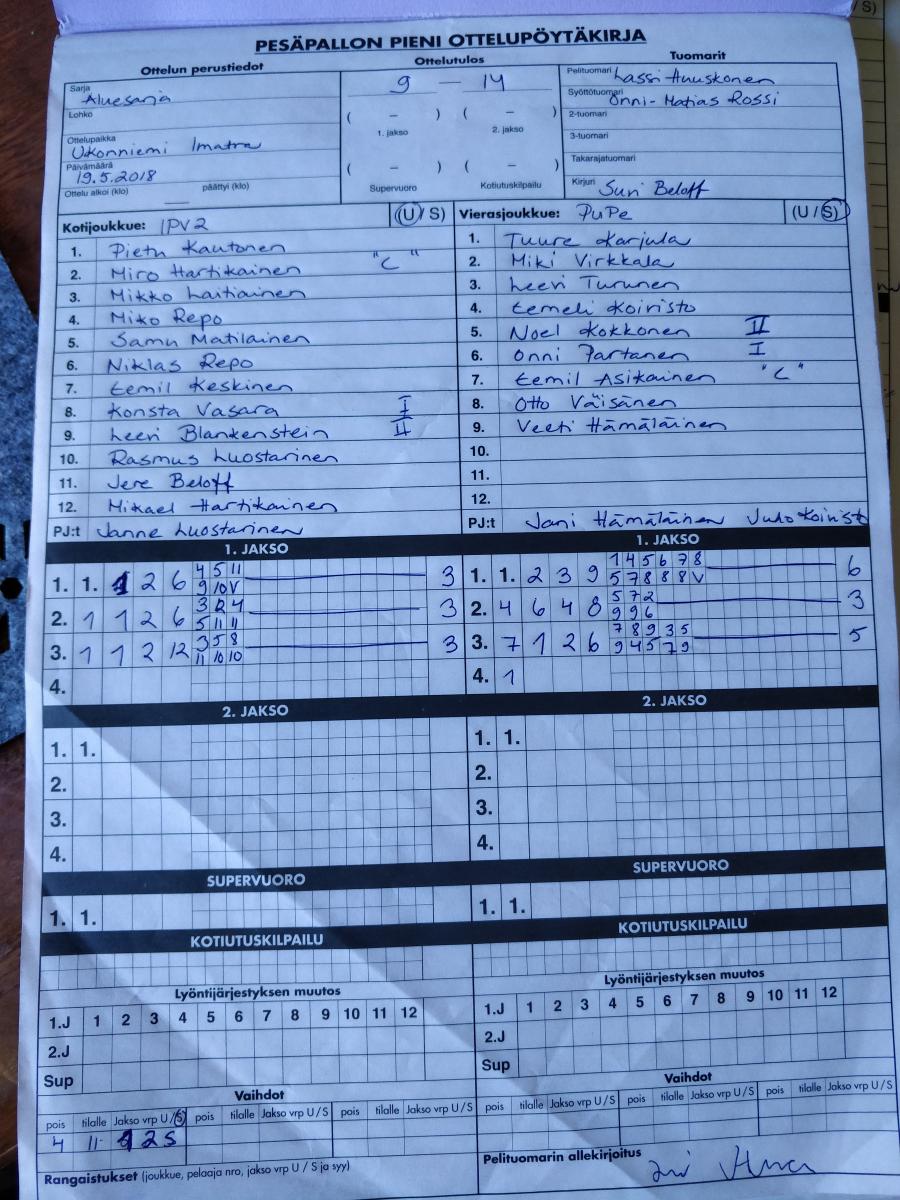 / S)
PESÄPALLON PIENI OTTELUPÖYTÄKIRJA
Ottelun perustiedot
Sarja
Aluesarja
Lohko
Ottelupaikka
Ukonniemi Imatra
Päivämäärä
19.5.2018
Ottelu alkoi (klo) päättyi (klo)
Ottelutulos
9 — 14
( – ) ( – )
1. jakso 2. jakso
( – ) ( – )
Supervuoro Kotiutuskilpailu
Tuomarit
Pelituomari Lassi Huuskonen
Syöttötuomari Onni-Matias Rossi
2-tuomari
3-tuomari
Takarajatuomari
Kirjuri Suri Beloff
Kotijoukkue: IPV2 (U/ S)
1. Pietu Kautonen
2. Miro Hartikainen "C"
3. Mikko Laitiainen
4. Miko Repo
5. Samu Matilainen
6. Niklas Repo
7. Eemil Keskinen
8. Konsta Vasara I
9. Leevi Blankenstein II
10. Rasmus Luostarinen
11. Jere Beloff
12. Mikael Hartikainen
PJ:t Janne Luostarinen
Vierasjoukkue: PuPe (U / S)
1. Tuure Karjula
2. Miki Virkkala
3. Leevi Turunen
4. Eemeli Koivisto
5. Noel Kokkonen II
6. Onni Partanen I
7. Eemil Asikainen "C"
8. Otto Väisänen
9. Veeti Hämäläinen
10.
11.
12.
PJ:t Jani Hämäläinen Juho Koivisto
1. JAKSO
4 5 11
1. 1. 1 2 6 3
9 10 V
3 12 4
2. 1 1 2 6 3
5 11 11
3 5 8
3. 1 1 2 12 3
11 10 10
4.
1. JAKSO
1 4 5 6 7 8
1. 1. 2 3 9 6
5 7 8 8 8 V
5 7 2
2. 4 6 4 8 3
9 9 6
7 8 9 3 5
3. 7 1 2 6 5
9 4 5 7 9
4. 1
2. JAKSO
1. 1.
2.
3.
4.
2. JAKSO
1. 1.
2.
3.
4.
SUPERVUORO
1. 1.
SUPERVUORO
1. 1.
KOTIUTUSKILPAILU
KOTIUTUSKILPAILU
Lyöntijärjestyksen muutos
1.J 1 2 3 4 5 6 7 8 9 10 11 12
2.J
Sup
Lyöntijärjestyksen muutos
1.J 1 2 3 4 5 6 7 8 9 10 11 12
2.J
Sup
Vaihdot
pois tilalle Jakso vrp U / S pois tilalle Jakso vrp U / S pois tilalle Jakso vrp U / S
4 11 1 2 S
Vaihdot
pois tilalle Jakso vrp U / S pois tilalle Jakso vrp U / S pois tilalle Jakso vrp U / S
Rangaistukset (joukkue, pelaaja nro, jakso vrp U / S ja syy)
Pelituomarin allekirjoitus